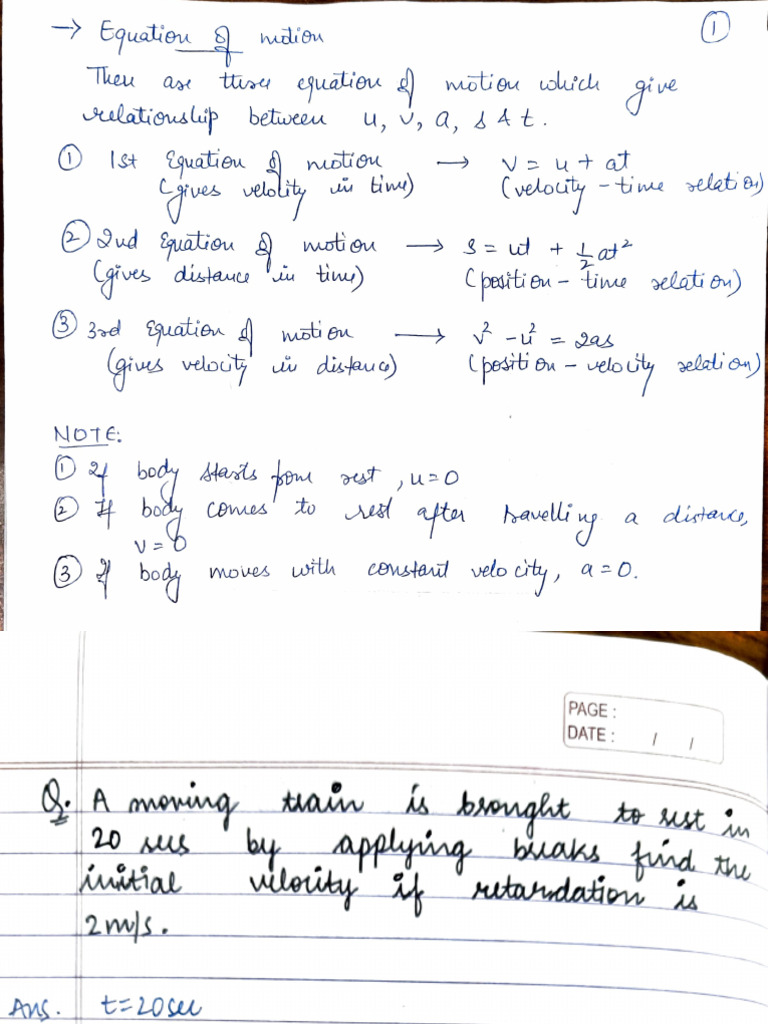 → Equation of motion
①
There are three equation of motion which give
relationship between u, v, a, s & t.
① 1st Equation of motion → v = u + at
(gives velocity in time) (velocity - time relation)
② 2nd Equation of motion → s = ut + 1/2 at²
(gives distance in time) (position - time relation)
③ 3rd Equation of motion → v² - u² = 2as
(gives velocity in distance) (position - velocity relation)
NOTE:
① If body starts from rest, u=0
② If body comes to rest after travelling a distance,
v = 0
③ If body moves with constant velocity, a=0.
PAGE :
DATE : / /
Q. A moving train is brought to rest in
20 secs by applying breaks find the
initial velocity if retardation is
2m/s.
Ans. t=20sec